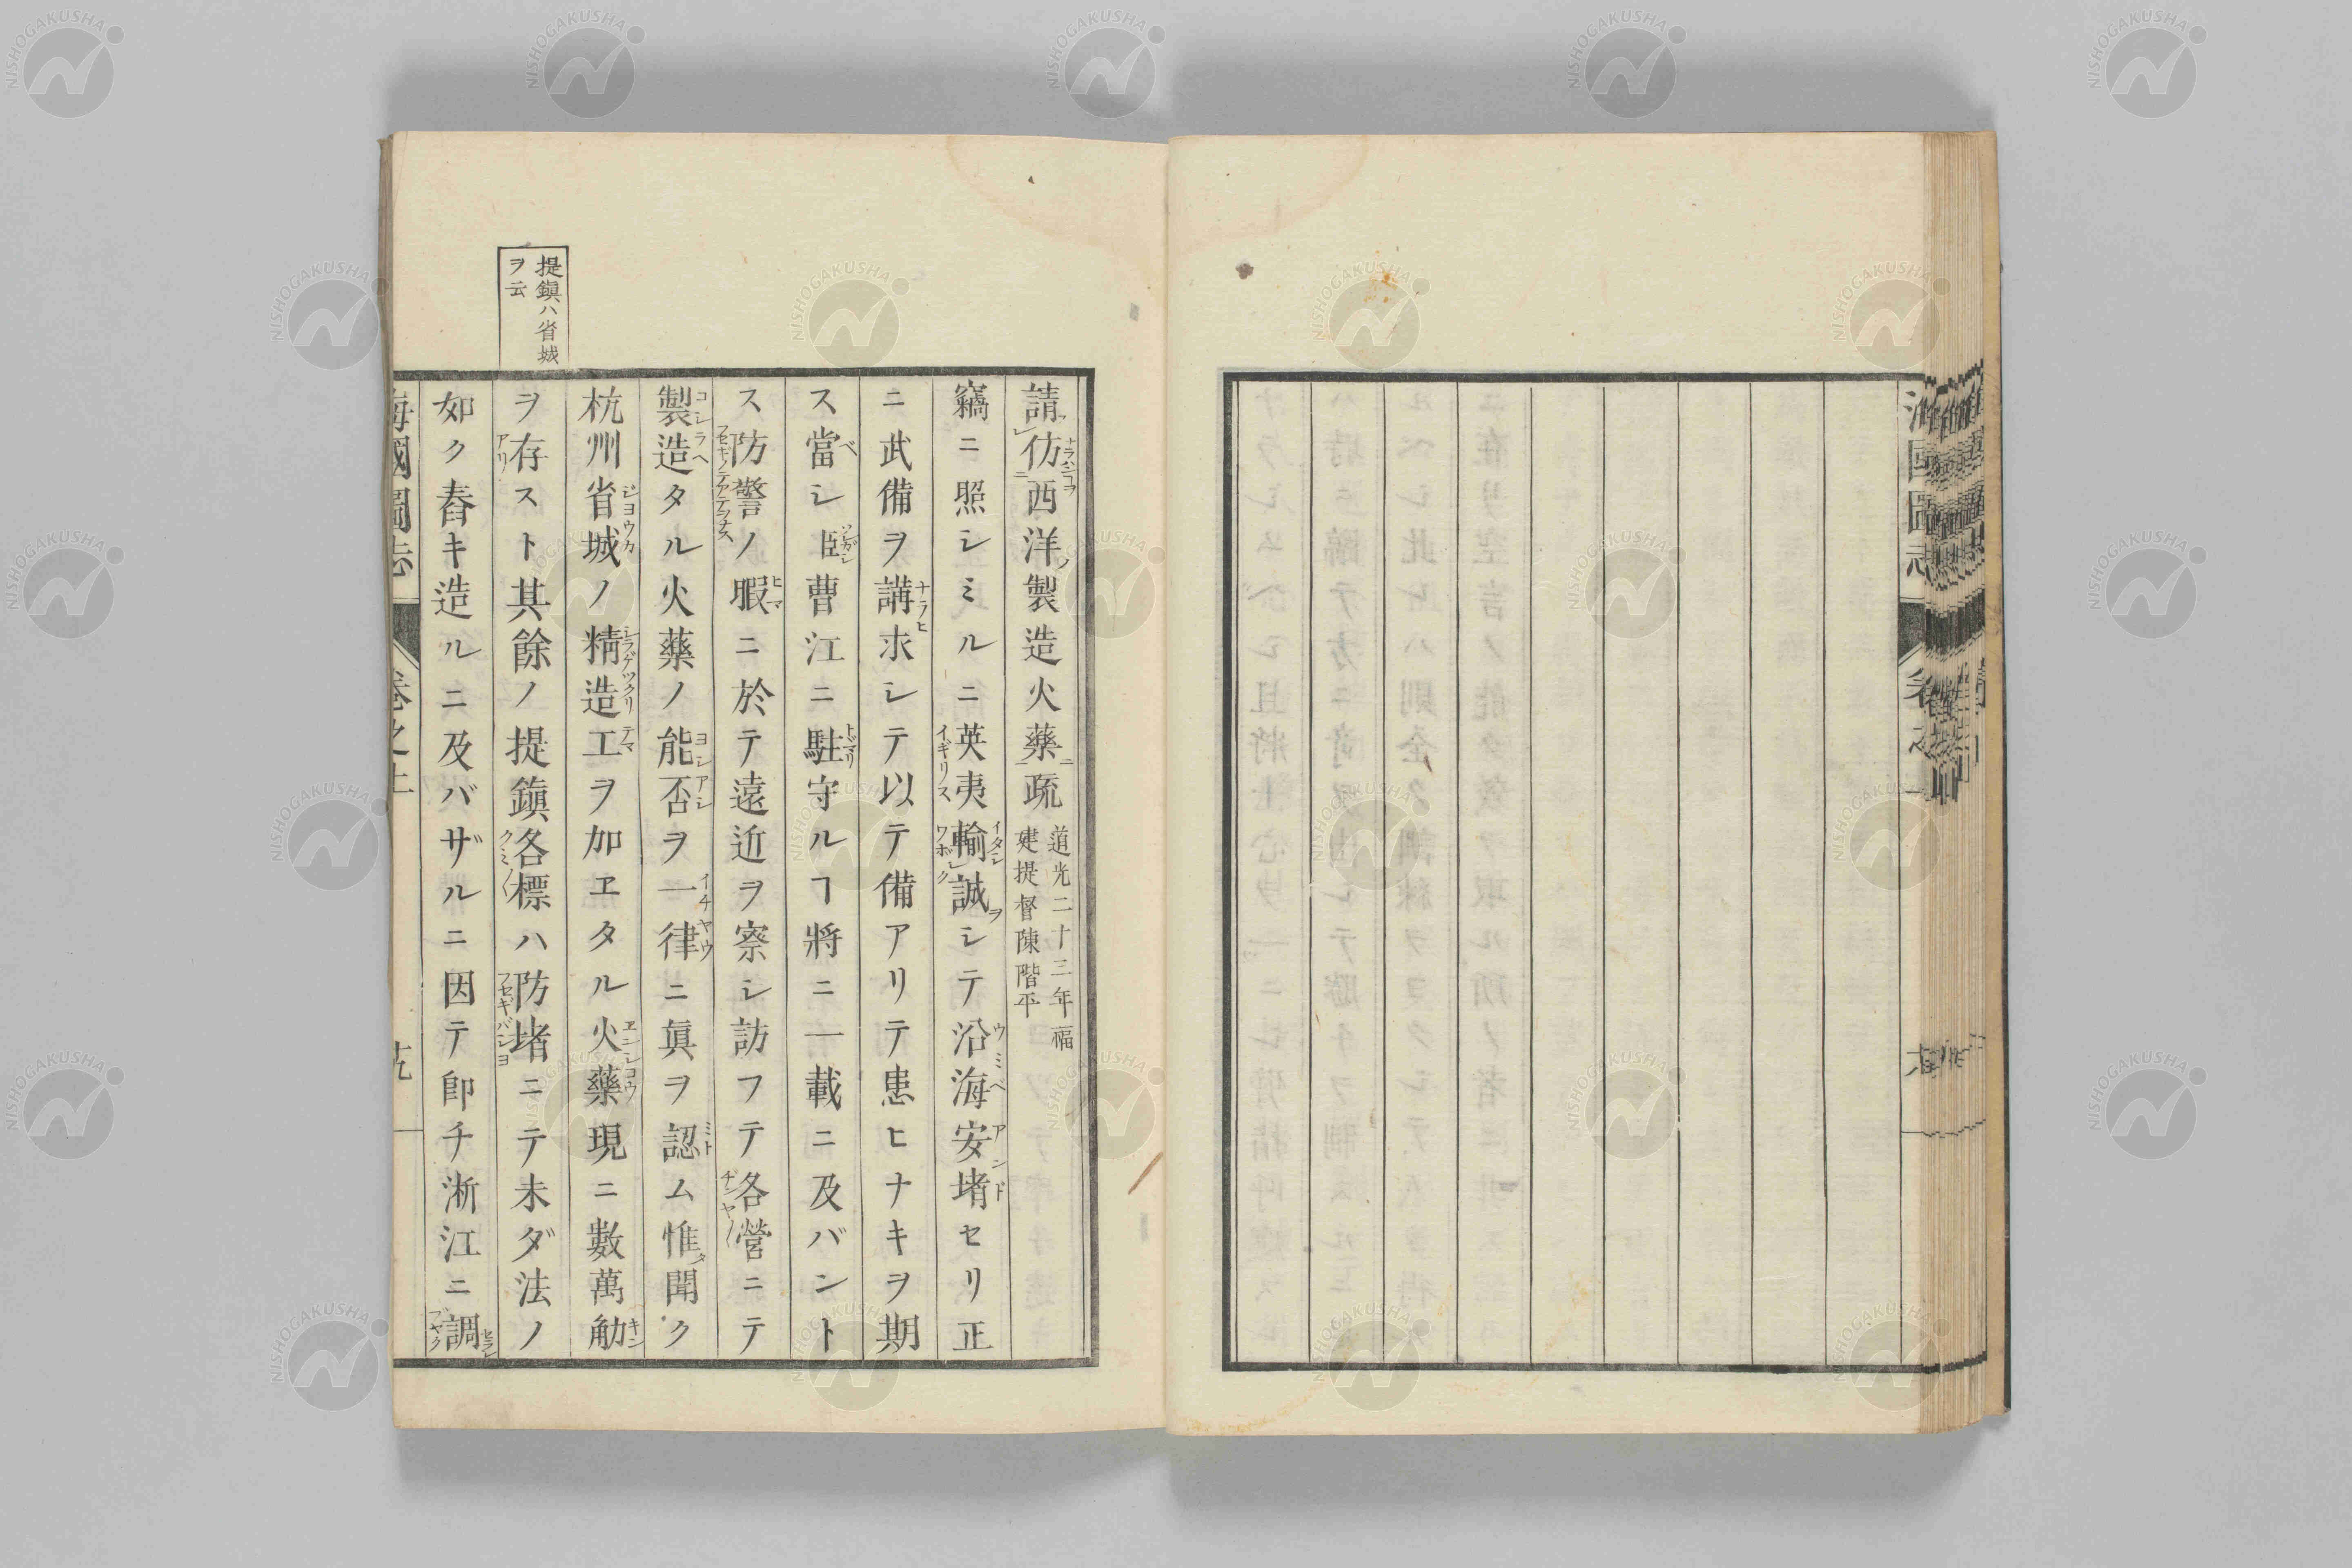 提鎭ハ省城
ヲ云
請仿西洋製造火藥疏 道光二十三年福
建提督陳階平
竊ニ照シミルニ英夷輸誠シテ沿海安堵セリ正
ニ武備ヲ講求シテ以テ備アリテ患ヒナキヲ期
ス當シ臣曹江ニ駐守ルヿ將ニ一載ニ及バント
ス防警ノ暇ニ於テ遠近ヲ察シ訪フテ各營ニテ
製造タル火藥ノ能否ヲ一律ニ眞ヲ認ム惟聞ク
杭州省城ノ精造工ヲ加ヱタル火藥現ニ數萬觔
ヲ存スト其餘ノ提鎭各標ハ防堵ニテ未ダ法ノ
如ク舂キ造ルニ及バザルニ因テ卽チ淅江ニ調
海國圖志
卷之上
NISHOGAKUSHA